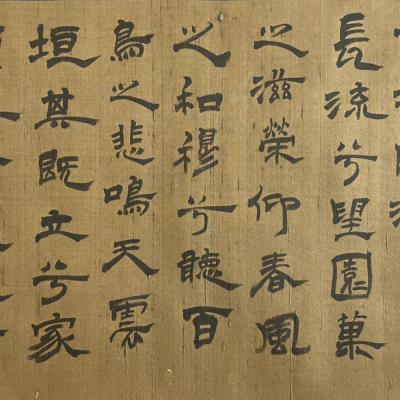 長流兮望園菓
之滋榮仰春風
之和穆兮聽百
鳥之悲鳴天雲
垣其既立兮家